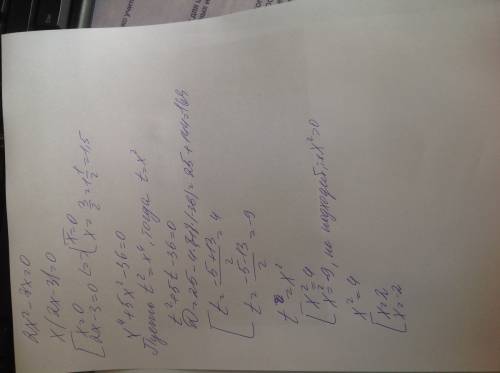 2x²-3x=0
x(2x-3)=0
[x=0
2x-3=0 (=) {x=0
x=3/2=1 1/2=1,5
x⁴+5x²-36=0
Пусть t²=x⁴, тогда t=x²
t²+5t-36=0
D=25-4*1*(-36)=25+144=169
[t=(-5+13)/2=4
t=(-5-13)/2=-9
t=x²
[x²=4
x²=9, не подходит, x²>0
x²=4
[x=2
x=2